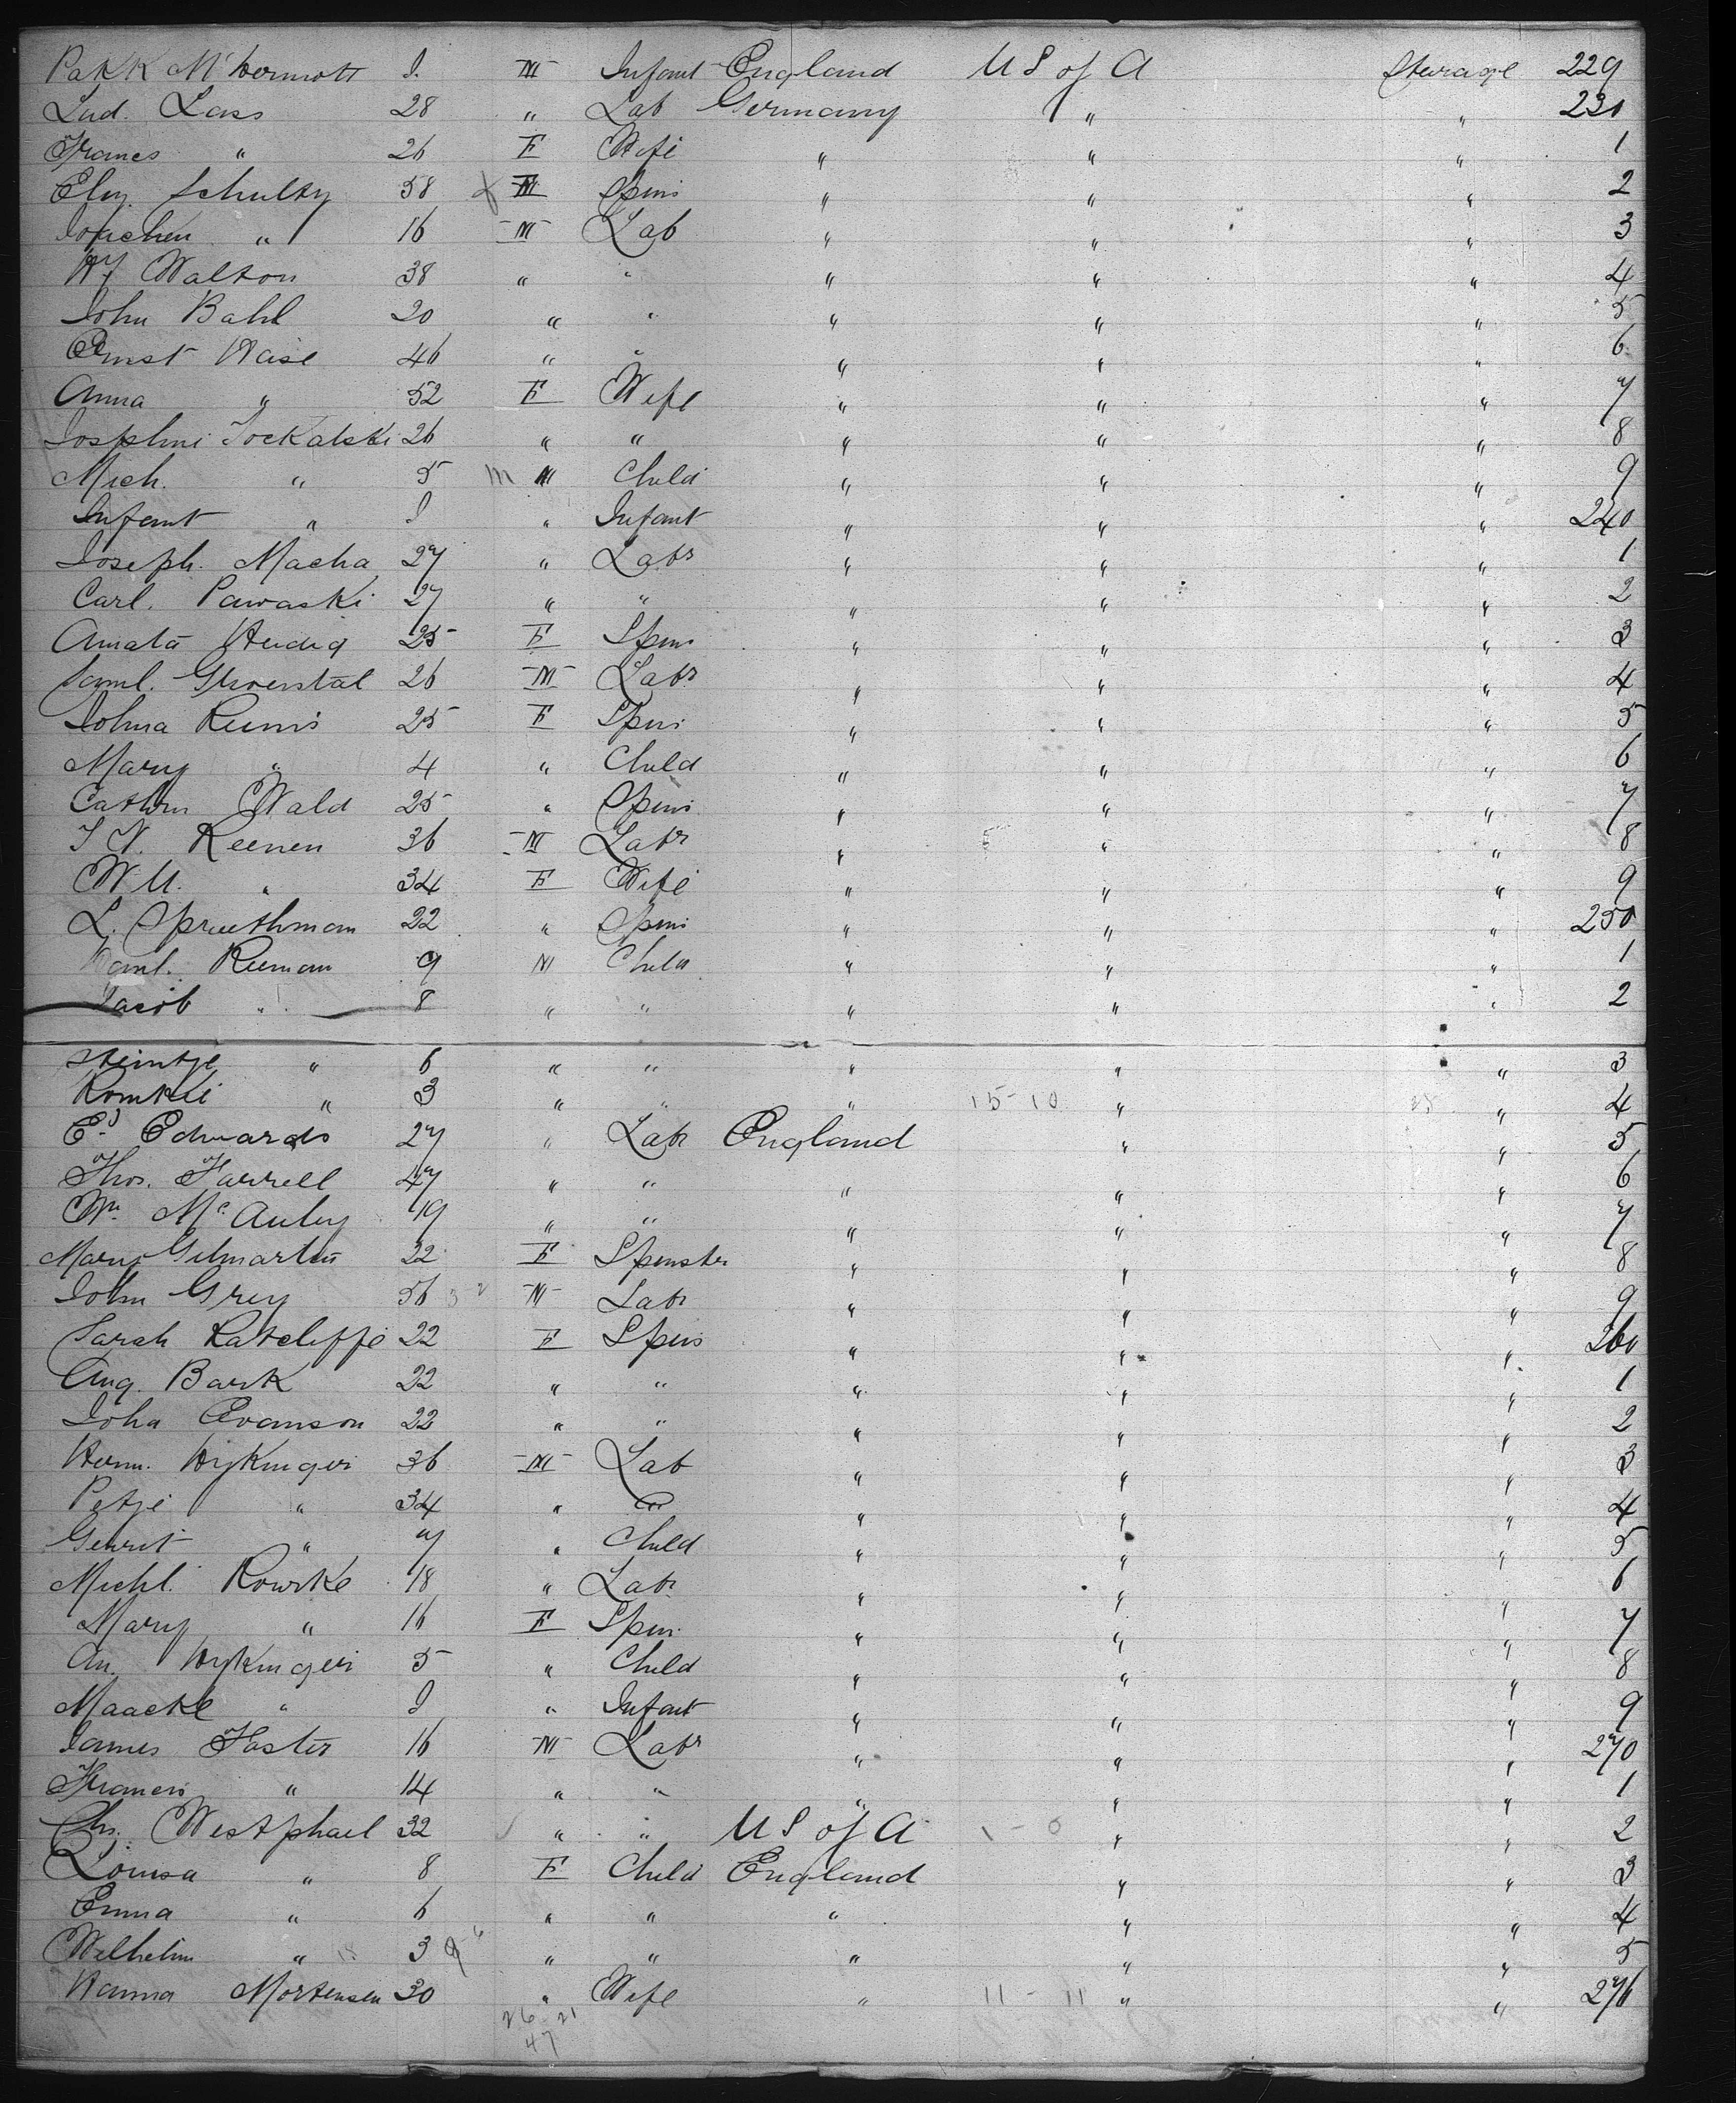 Patk McDermott I. M Infant England U S of A Steerage 229
Lud. Lass 28 " Lab Germany " " 230
Frances " 26 F Wife " " " 1
Eliz. Schultz 58 M Spin " " " 2
Joachen " 16 M Lab " " " 3
Hy Walton 38 " " " " " 4
John Bahl 20 " " " " " 5
Ernst Haise 46 " " " " " 6
Anna " 52 F Wife " " " 7
Josphine Sockalski 26 " " " " " 8
Mich. " 5 M Child " " " 9
Infant " I " Infant " " " 240
Joseph. Macha 27 " Labr " " " 1
Carl. Pawaski 27 " " " " " 2
Amata Hedig 25 F Spin " " " 3
Saml. Groenstal 26 M Labr " " " 4
Johna Reems 25 F Spin " " " 5
Mary " 4 " Child " " " 6
Cathrn Wald 25 " Spin " " " 7
J V. Keenen 36 M Labr " " " 8
W M. " 34 F Wife " " " 9
L. Spruethman 22 " Spin " " " 250
Saml. Rieman 9 M Child " " " 1
Jacob " 8 " " " " " 2
Steintje " 6 " " " " " 3
Romkie " 3 " " " 15-10 " " 4
Ed Edwards 27 " Labr England " " 5
Thos. Farrell 47 " " " " " 6
Wm McAuley 19 " " " " " 7
Mary Gilmartin 22 F Spinster " " " 8
John Grey 56 M Labr " " " 9
Sarah Ratcliffe 22 F Spin " " " 260
Aug. Bark 22 " " " " " 1
Joha Evanson 22 " " " " " 2
Herm. Wykinger 36 M Lab " " " 3
Petje " 34 " " " " 4
Gerrit " 7 " Child " " " 5
Michl. Rowrke 18 " Labr " " " 6
Mary " 16 F Spin. " " " 7
An. Wykinger 5 " Child " " " 8
Maacke " I " Infant " " " 9
James Foster 16 M Labr " " " 270
Francis " 14 " " " " " 1
Chs. Westphael 32 " " U S of A 1-0 " " 2
Louisa " 8 F Child England " " 3
Emma " 6 " " " " " 4
Wilhelm " 3 " " " " " 5
Hanna Mortensen 30 " Wife " 11-11 " " 276
26 21
47